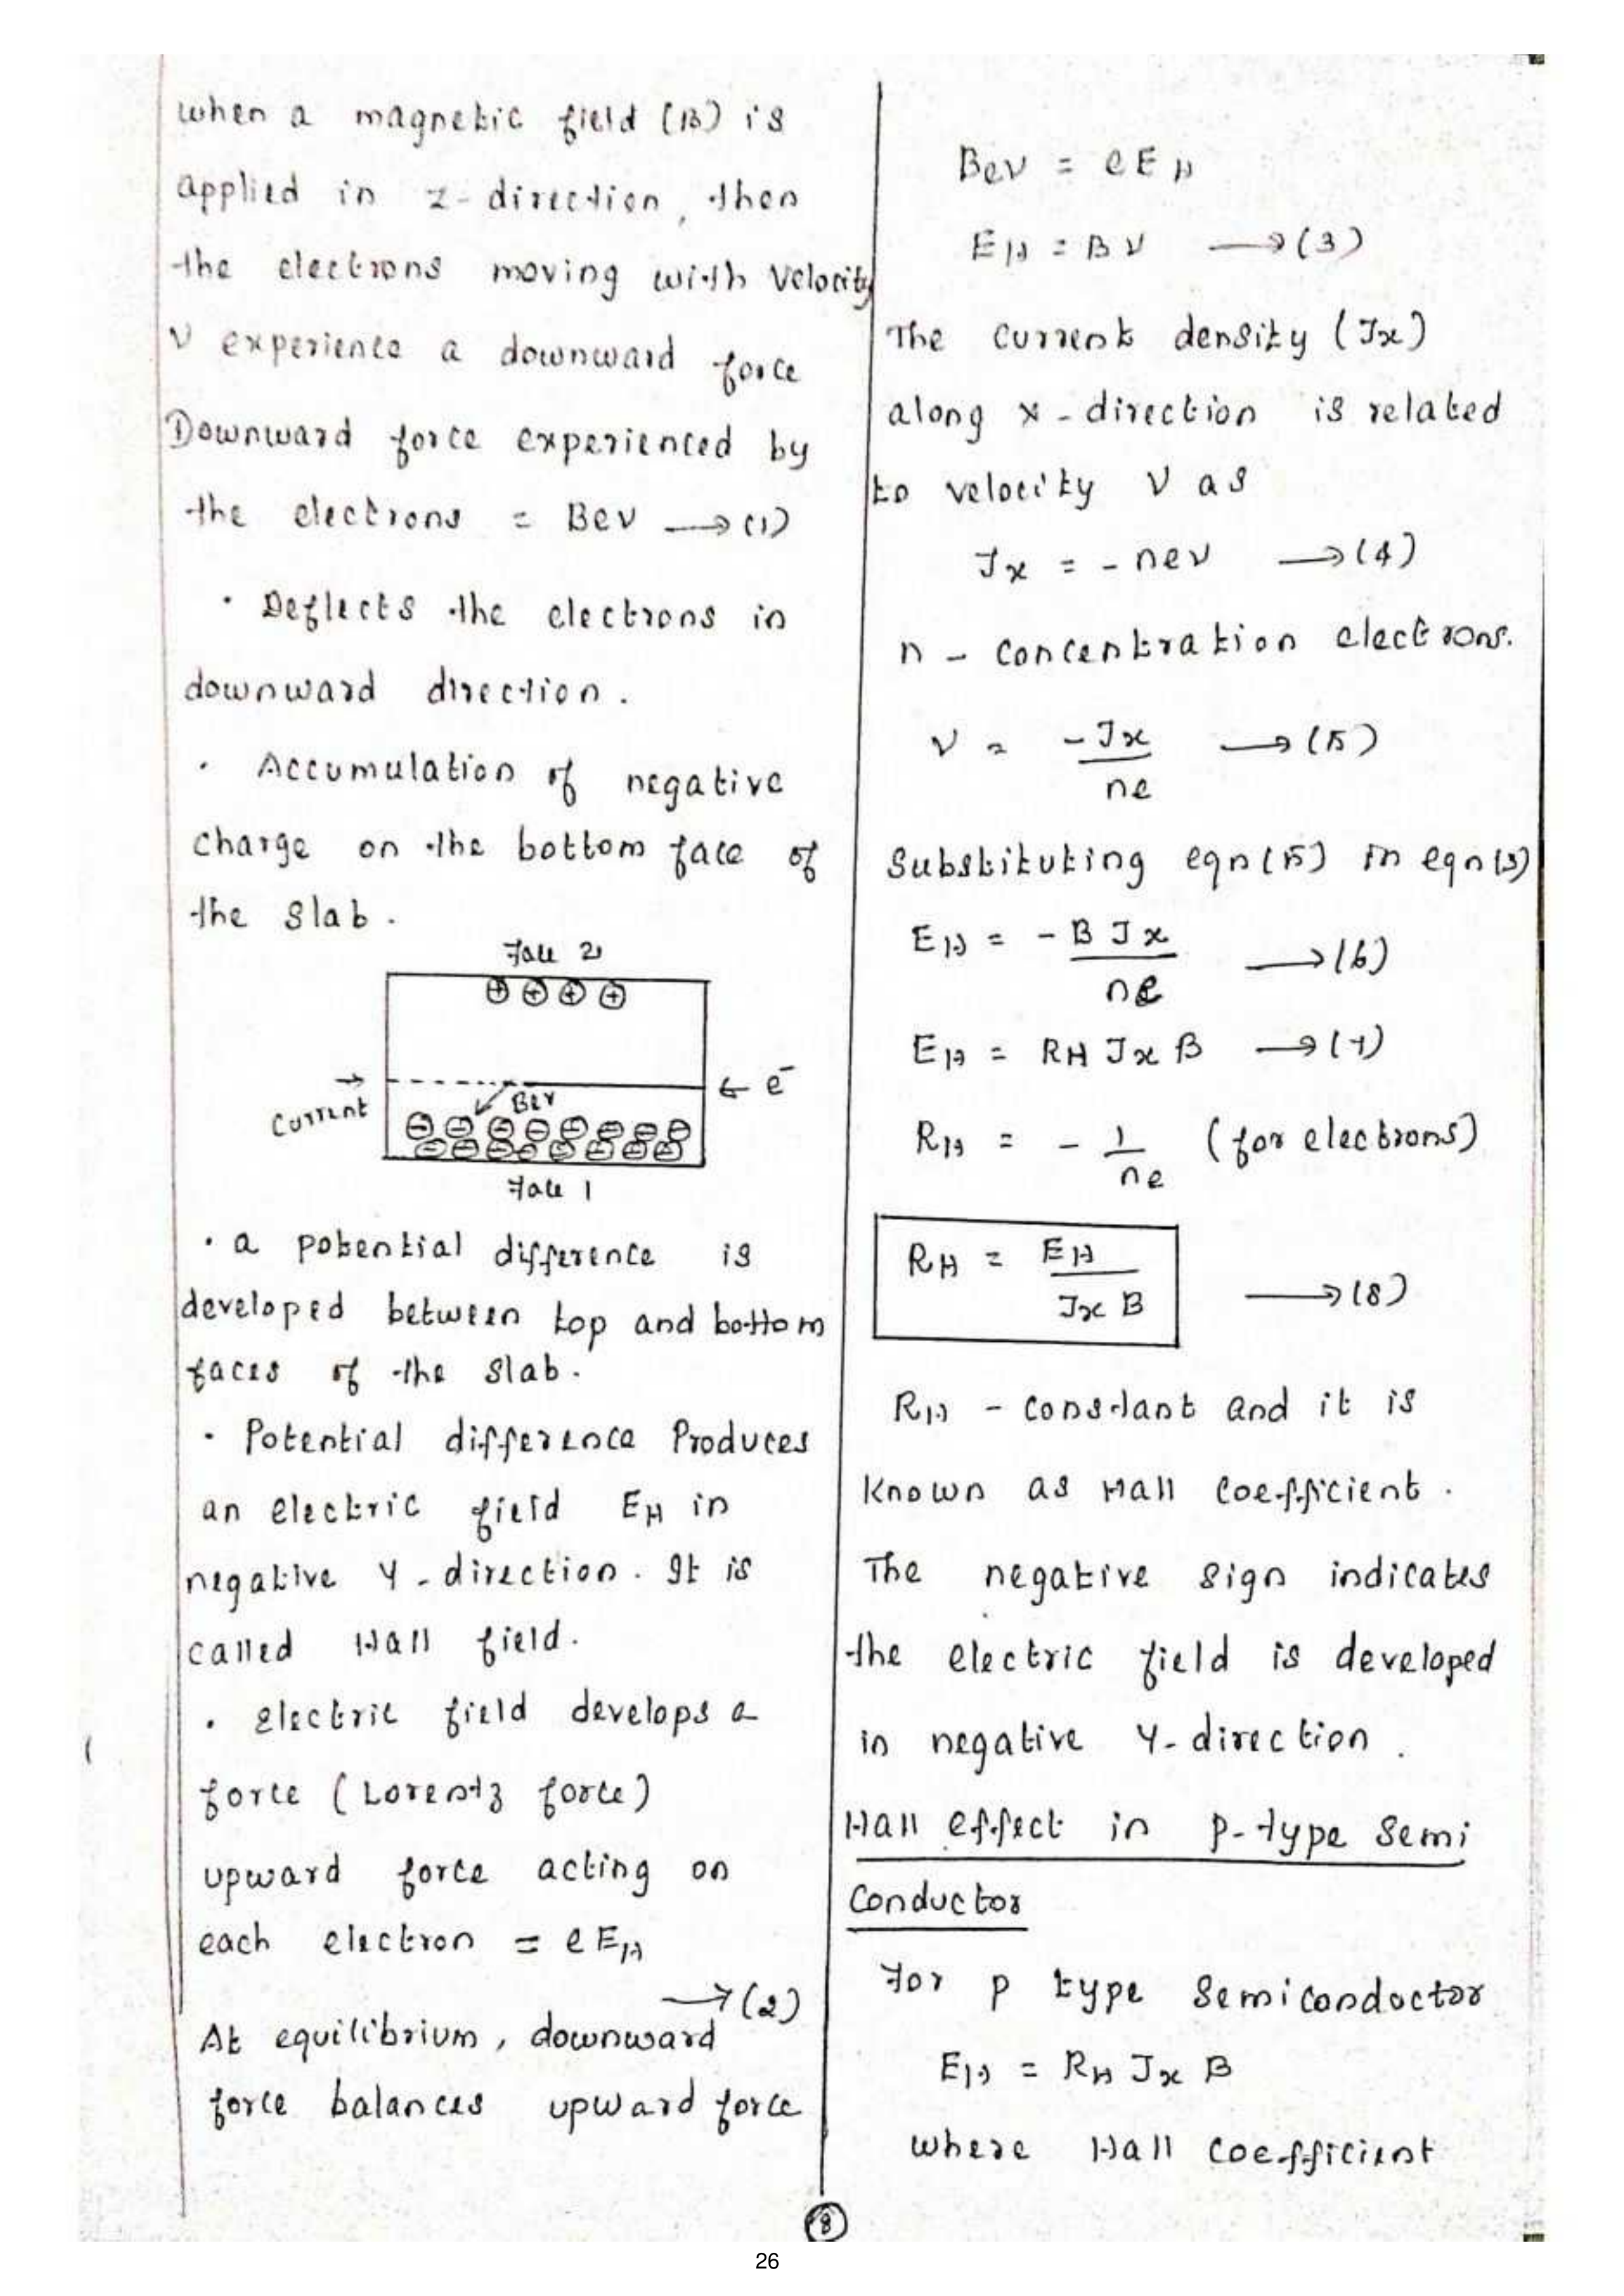 when a magnetic field (B) is
applied in z-direction, then
the electrons moving with velocity
v experience a downward force
Downward force experienced by
the electrons = Bev → (1)
· Deflects the electrons in
downward direction.
· Accumulation of negative
charge on the bottom face of
the slab.
Face 2
⊕ ⊕ ⊕ ⊕
→
Current
← e⁻
Bev
⊖ ⊖ ⊖ ⊖ ⊖ ⊖ ⊖ ⊖
⊖ ⊖ ⊖ ⊖ ⊖ ⊖ ⊖ ⊖
Face 1
· a potential difference is
developed between top and bottom
faces of the slab.
· Potential difference Produces
an electric field E_H in
negative Y-direction. It is
called Hall field.
· Electric field develops a
force (Lorentz force)
upward force acting on
each electron = eE_H
→ (2)
At equilibrium, downward
force balances upward force
Bev = eE_H
E_H = Bv → (3)
The current density (Jx)
along x-direction is related
to velocity v as
Jx = -nev → (4)
n - concentration electrons.
v = -Jx / ne → (5)
Substituting eqn(5) in eqn(3)
E_H = -B Jx / ne → (6)
E_H = R_H Jx B → (7)
R_H = - 1/ne (for electrons)
R_H = E_H / Jx B → (8)
R_H - constant and it is
known as Hall coefficient.
The negative sign indicates
the electric field is developed
in negative Y-direction.
Hall effect in P-type Semi
Conductor
For p type Semiconductor
E_H = R_H Jx B
where Hall coefficient
8
26